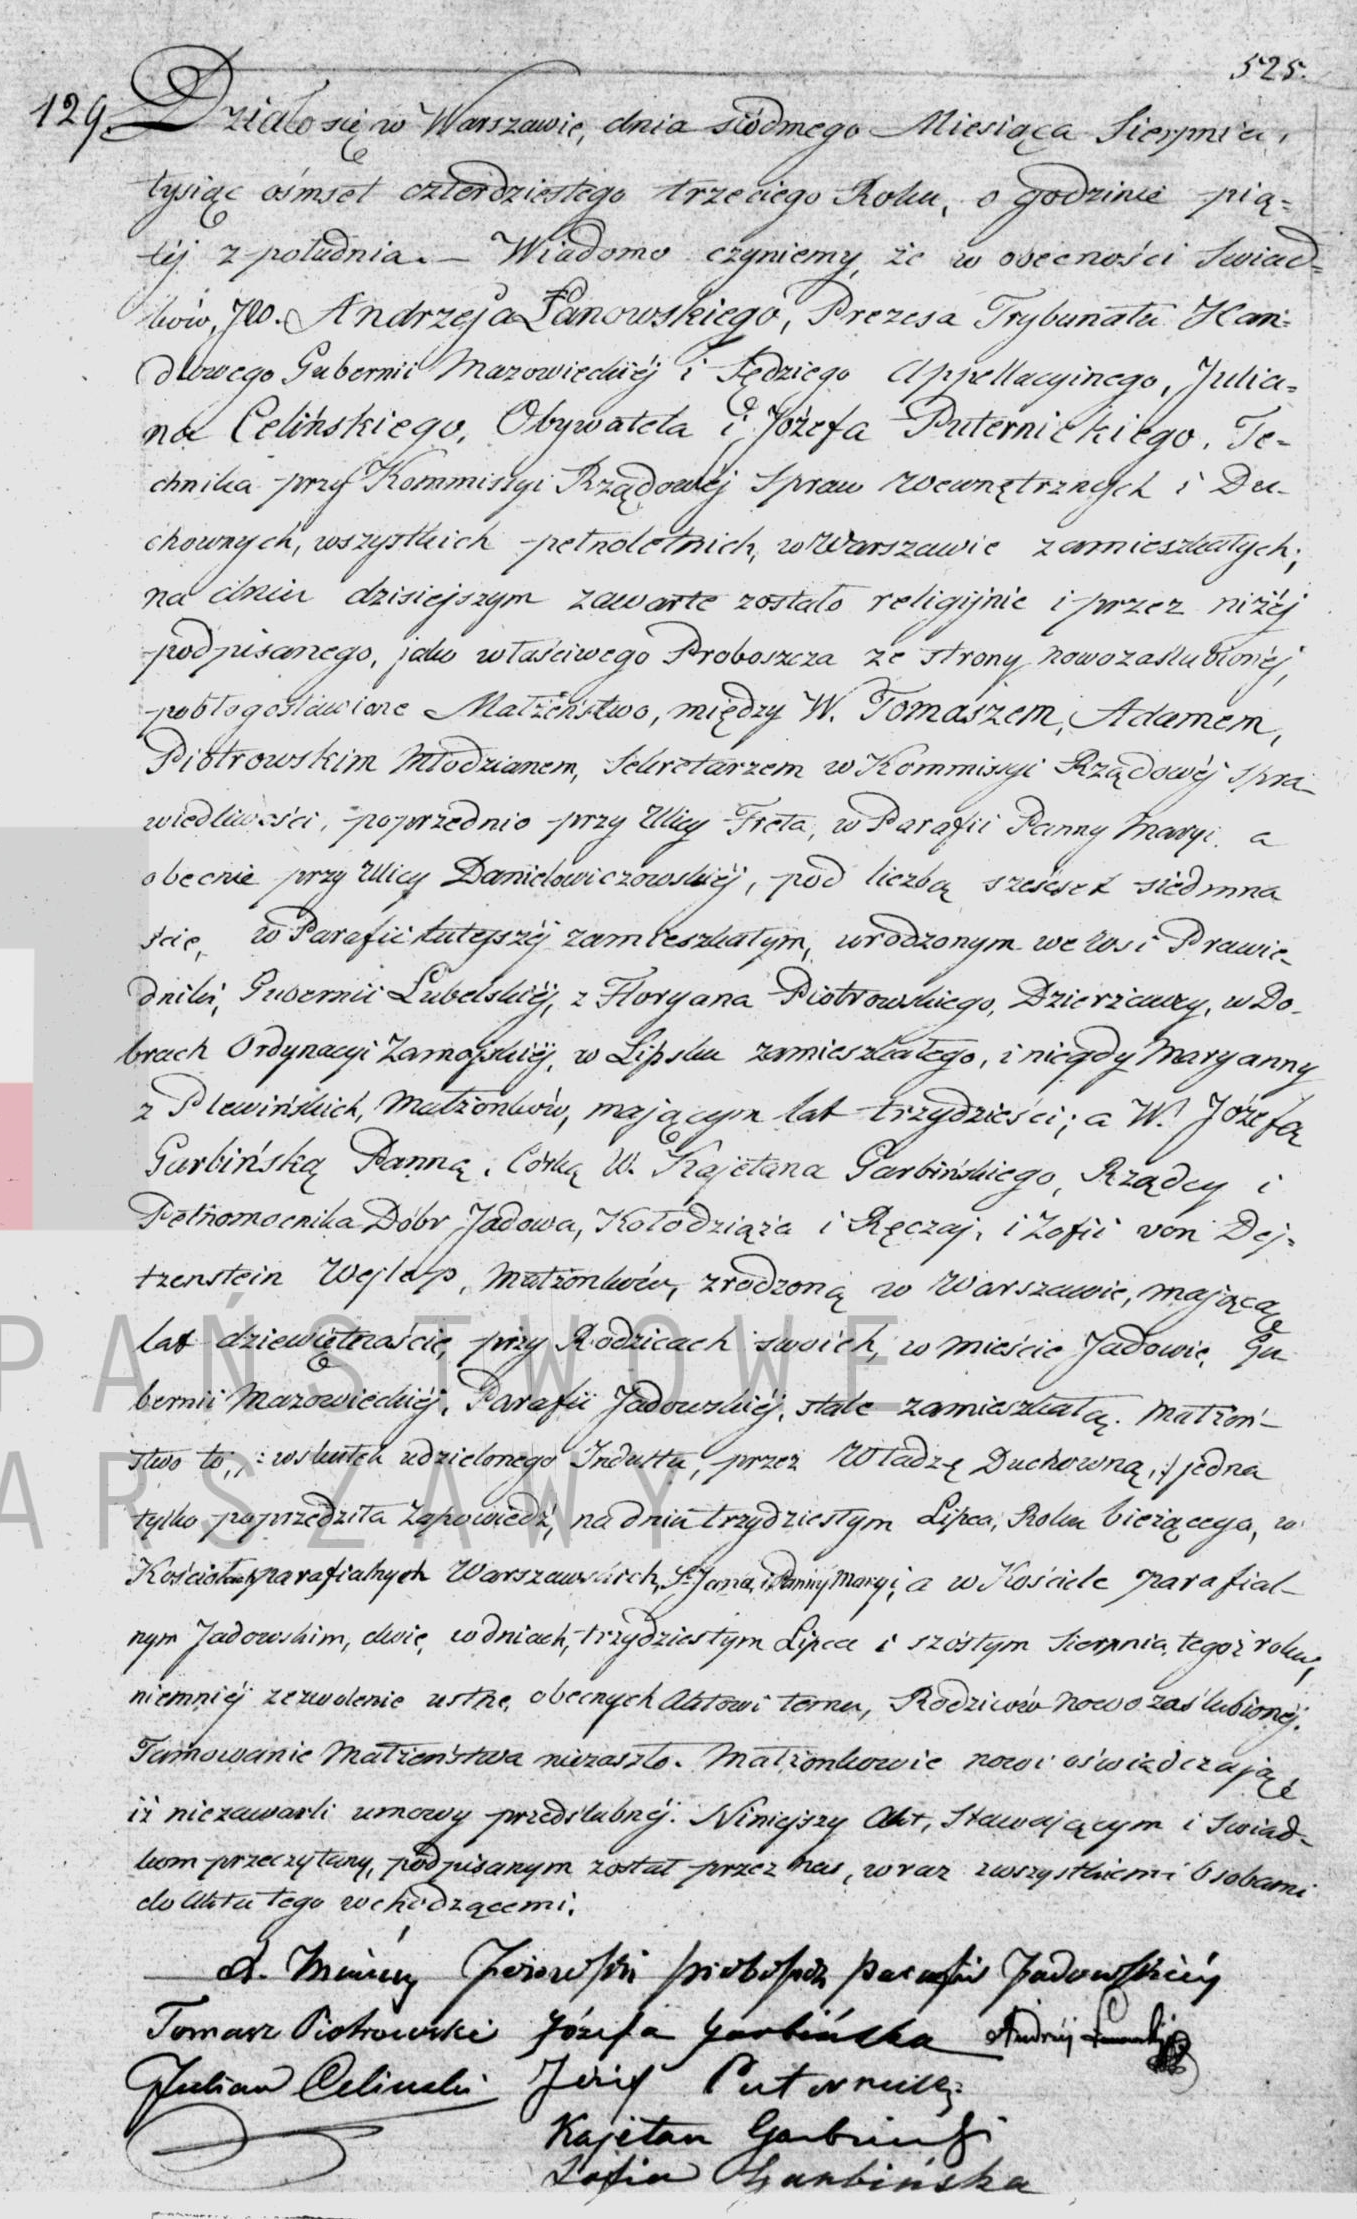 525.
129. Działo się w Warszawie, dnia siódmego Miesiąca Sierpnia,
tysiąc ośmset czterdziestego trzeciego Roku, o godzinie pią=
téj z południa. — Wiadomo czyniemy, że w obecności Swiad=
ków, JW. Andrzeja Łanowskiego, Prezesa Trybunału Han=
dlowego Gubernii Mazowieckiéj i Sędziego Appellacyinego, Julia=
na Celińskiego, Obywatela i Józefa Puternickiego, Te-
chnika przy Kommissyi Rządowéj Spraw Wewnętrznych i Du-
chownych, wszystkich pełnoletnich, w Warszawie zamieszkałych;
na dniu dzisiejszym zawarte zostało religijnie i przez niżéj
podpisanego, jako właściwego Proboszcza ze strony nowozaslubionéj,
pobłogosławione Małżeństwo, między W. Tomaszem, Adamem,
Piotrowskim Młodzianem, Sekretarzem w Kommissyi Rządowéj Spra-
wiedliwości, poprzednio przy Ulicy Freta, w Parafii Panny Maryi, a
obecnie przy Ulicy Danielowiczowskiéj, pod liczbą szescset siedmna
ście, w Parafii tutejszéj zamieszkałym, urodzonym we Wsi Prawie-
dniki, Gubernii Lubelskiéj, z Floryana Piotrowskiego, Dzierżawcy, w Do-
brach Ordynacyi Zamojskiéj, w Lipsku zamieszkałego, i niegdy Maryanny
z Plewińskich, Małżonków, mającym lat trzydzieści; a W. Józefą
Garbińską Panną, Córką W. Kajetana Garbińskiego, Rządcy i
Pełnomocnika Dóbr Jadowa, Kołodziąża i Ręczaj, i Zofii von Dej=
tzenstein Wejlep, Małżonków, zrodzoną w Warszawie, mającą
lat dziewiętnaście, przy Rodzicach swoich, w mieście Jadowie, Gu-
bernii Mazowieckiéj, Parafii Jadowskiéj, stale zamieszkałą. Małżeń-
stwo to, : wskutek udzielonego Indultu, przez Władzę Duchowną, :/ jedna
tylko poprzedziła Zapowiedź, na dniu trzydziestym Lipca, Roku bieżącego, w
Kościołach parafialnych Warszawskich, S. Jana, i Panny Maryi, a w Kościele parafial-
nym Jadowskim, dwie, w dniach, trzydziestym Lipca i szóstym Sierpnia, tegoż roku,
niemniéj zezwolenie ustne, obecnych Aktowi temu, Rodziców nowo zaślubionéj.
Tamowanie Małżeństwa niezaszło. Małżonkowie nowi oświadczają
iż niezawarli umowy przedślubnéj. Niniejszy Akt, Stawającym i Swiad-
kom przeczytany, podpisanym został przez nas, wraz zwszystkiemi Osobami
do Aktu tego wchodzącemi.
Proboszcz Parafii Jadowskiéj
Tomasz Piotrowski Józefa Garbińska Andrzéj
Julian Celinski Józef Puternicki
Kajetan Garbiński
Zofia Garbińska
PAŃSTWOWE
ARSZAWY